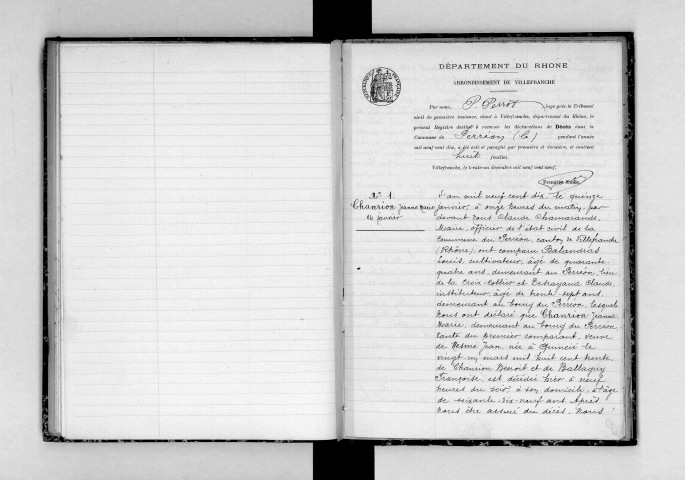 DÉPARTEMENT DU RHONE
ARRONDISSEMENT DE VILLEFRANCHE
Par nous, P. Perrot Juge près le Tribunal
civil de première instance, séant à Villefranche, département du Rhône, le
présent Registre destiné à recevoir les déclarations de Décès dans la
Commune de Perréon (le) pendant l'année
mil neuf cent dix, a été coté et paraphé par première et dernière, et contient
huit feuillets.
Villefranche, le trente-un décembre mil neuf cent neuf.
Première feuille
N° 1.
Chanrion Jeanne Marie
14 janvier
L'an mil neuf cent dix, le quinze
janvier, à onze heures du matin, par
devant nous Claude Chamarande,
Maire, officier de l'état civil de la
commune du Perréon, canton de Villefranche
(Rhône), ont comparu Balandras
Louis, cultivateur, âgé de quarante
quatre ans, demeurant au Perréon, lieu
de la Croix-Collier et Claude,
instituteur, âgé de trente-sept ans,
demeurant au bourg du Perréon, lesquels
nous ont déclaré que Chanrion Jeanne
Marie, demeurant au bourg du Perréon,
tante du premier comparant, veuve
de Nesme Jean, née à Quincié le
vingt-un mars mil huit cent trente
de Chanrion Benoit et de Ballaguy
Françoise, est décédée hier à neuf
heures du soir, à son domicile, à l'âge
de soixante-dix-neuf ans. Après
nous être assuré du décès, nous